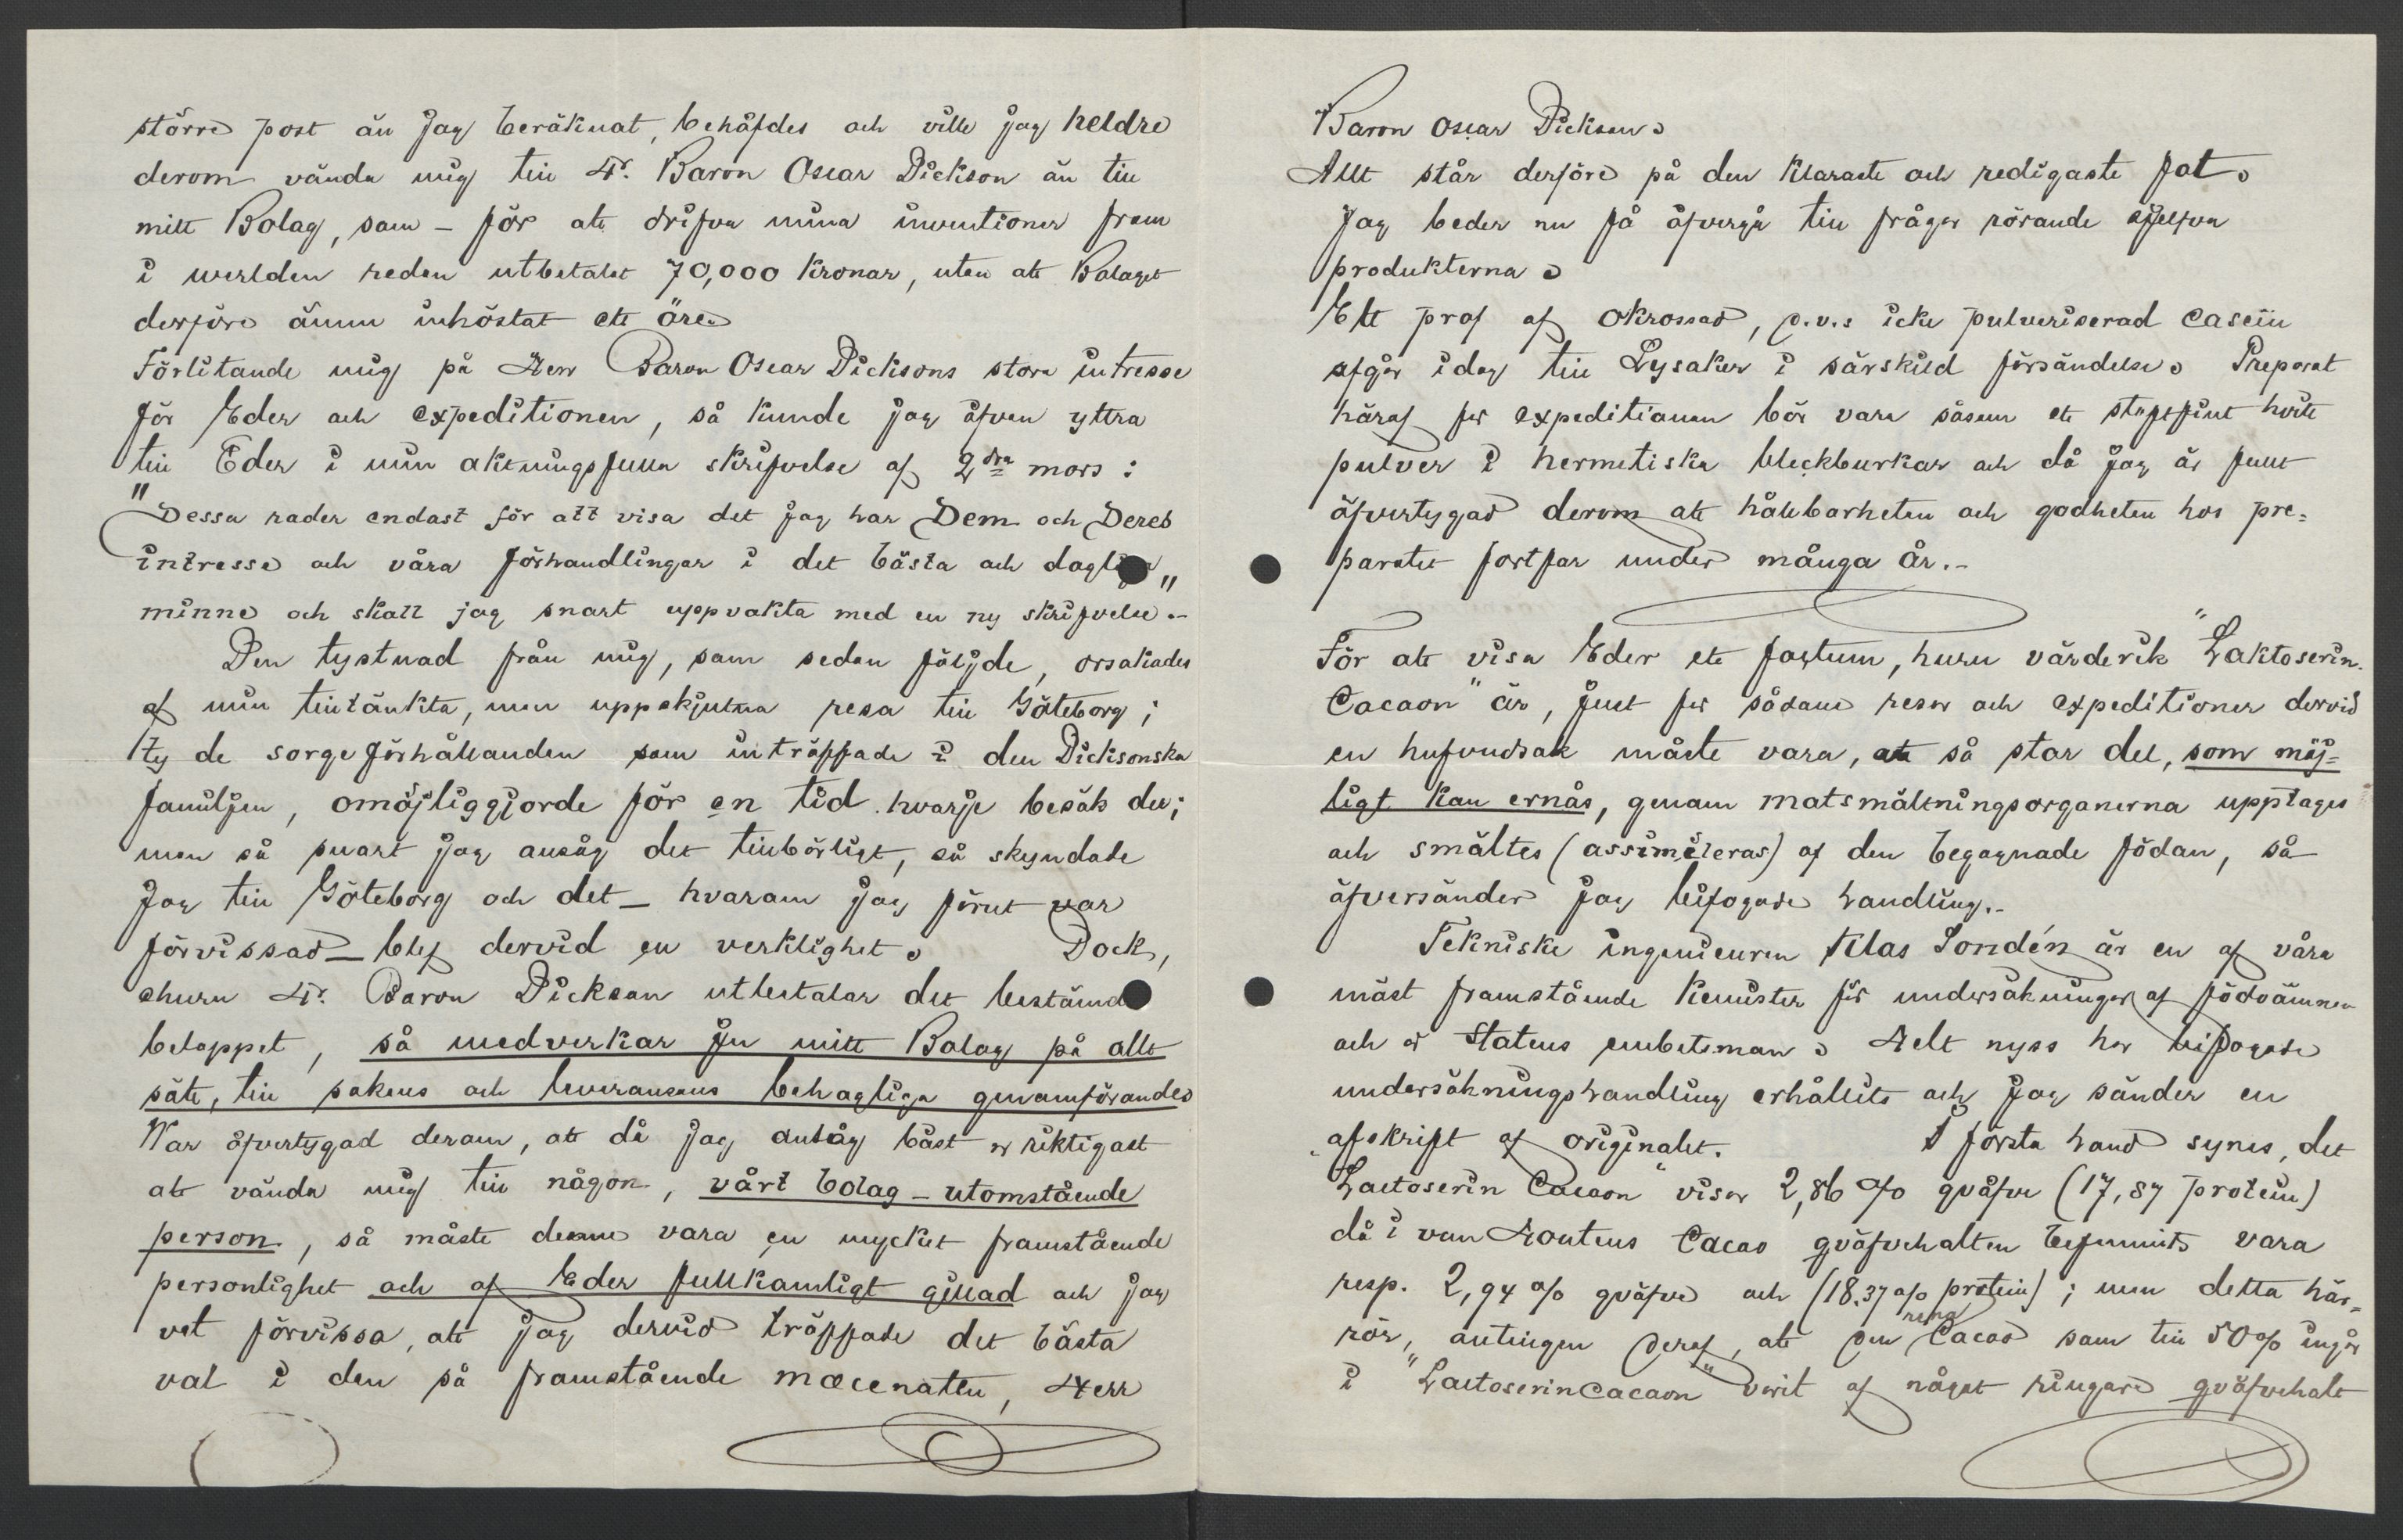 större post än jag beräknat, behöfdes och ville jag heldre
derom vända mig till Hr. Baron Oscar Dickson än till
mitt Bolag, som – för att drifva mina inventioner fram
i werlden redan utbetalat 70,000 Kronor, utan att Bolaget
derföre ännu inhöstat ett öre.
Förlitande mig på Herr Baron Oscar Dicksons stora intresse
för Eder och expeditionen, så kunde jag äfven yttra
till Eder i min aktningsfulla skrifvelse af 2dra mars:
"Dessa rader endast för att visa det jag har Dem och Deres
intresse och våra förhandlingar i det bästa och dagliga"
minne och skall jag snart uppvakta med en ny skrifvelse.–
Den tystnad från mig, som sedan följde, orsakades
af min tilltänkta, men uppskjutna resa till Göteborg;
ty de sorgeförhållanden som inträffade i den Dicksonska
familjen, omöjliggjorde för en tid hvarje besök der;
men så snart jag ansåg det tillbörligt, så skyndade
Jag till Göteborg och det – hvarom jag förut var
förvissad – blef dervid en verklighet. Dock,
ehuru Hr. Baron Dickson utbetalar det bestämda
beloppet, så medverkar ju mitt Bolag på allt
sätt, till sakens och leveransens behagliga genomförande.
War öfvertygad derom, att då jag ansåg bäst o riktigast
att vända mig till någon, vårt bolag – utomstående
person, så måste denne vara en mycket framstående
personlighet och af Eder fullkomligt gillad och jag
vet förvissa, att jag dervid träffade det bästa
val i den så framstående mæcenaten, Herr
Baron Oscar Dickson.
Allt står derföre på den klaraste och redigaste fot.
Jag beder nu få öfvergå till frågor rörande sjelfva
produkterna.
Ett prof af okrossad, d.v.s icke pulveriserad casein
afgår idag till Lysaker i särskild försändelse. Preparat
häraf för expeditionen bör vara såsom ett stoftfint hvitt
pulver i hermetiska bleckburkar och då jag är fullt
öfvertygad derom att hållbarheten och godheten hos pre=
paratet fortfar under många år.–
För att visa Eder ett factum, huru värderik "Laktoserin-
Cacaon" är, just för sådane resor och expeditioner dervid
en hufvudsak måste vara, att så stor del, som möj=
ligt kan ernås, genom matsmältningsorganerna upptages
och smältes (assimileras) af den begagnade födan, så
öfversänder jag bifogade handling.–
Tekniske ingenieuren Klas Sondén är en af våra
mäst framstående kemister för undersökningar af födoämnen
och är Statens embetsman. Helt nyss har bifogade
undersökningshandling erhållits och jag sänder en
afskrift af originalet. I första hand synes, det
"Lactoserin Cacaon" visar 2,86 % qväfve (17,87 protein)
då i van Houtens Cacao qväfvehalten befunnits vara
resp. 2,94 % qväfve och (18.37 % protein); men detta här=
rör, antingen deraf, att den rena Cacao som till 50 % ingår
i "Lactoserincacaon" varit af något ringare qväfvehalt